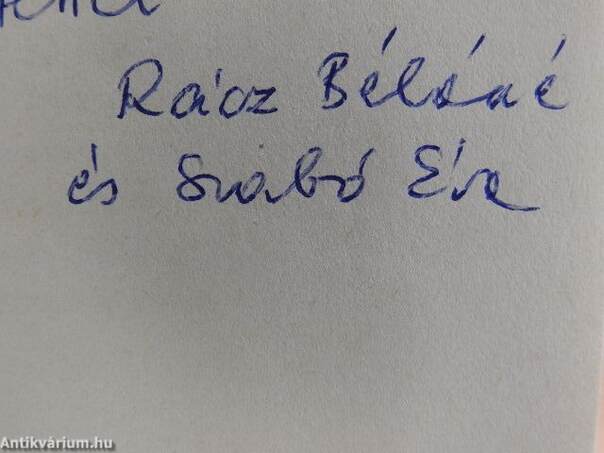 Rácz Béláné
és Szabó Éva
Antikvárium.hu